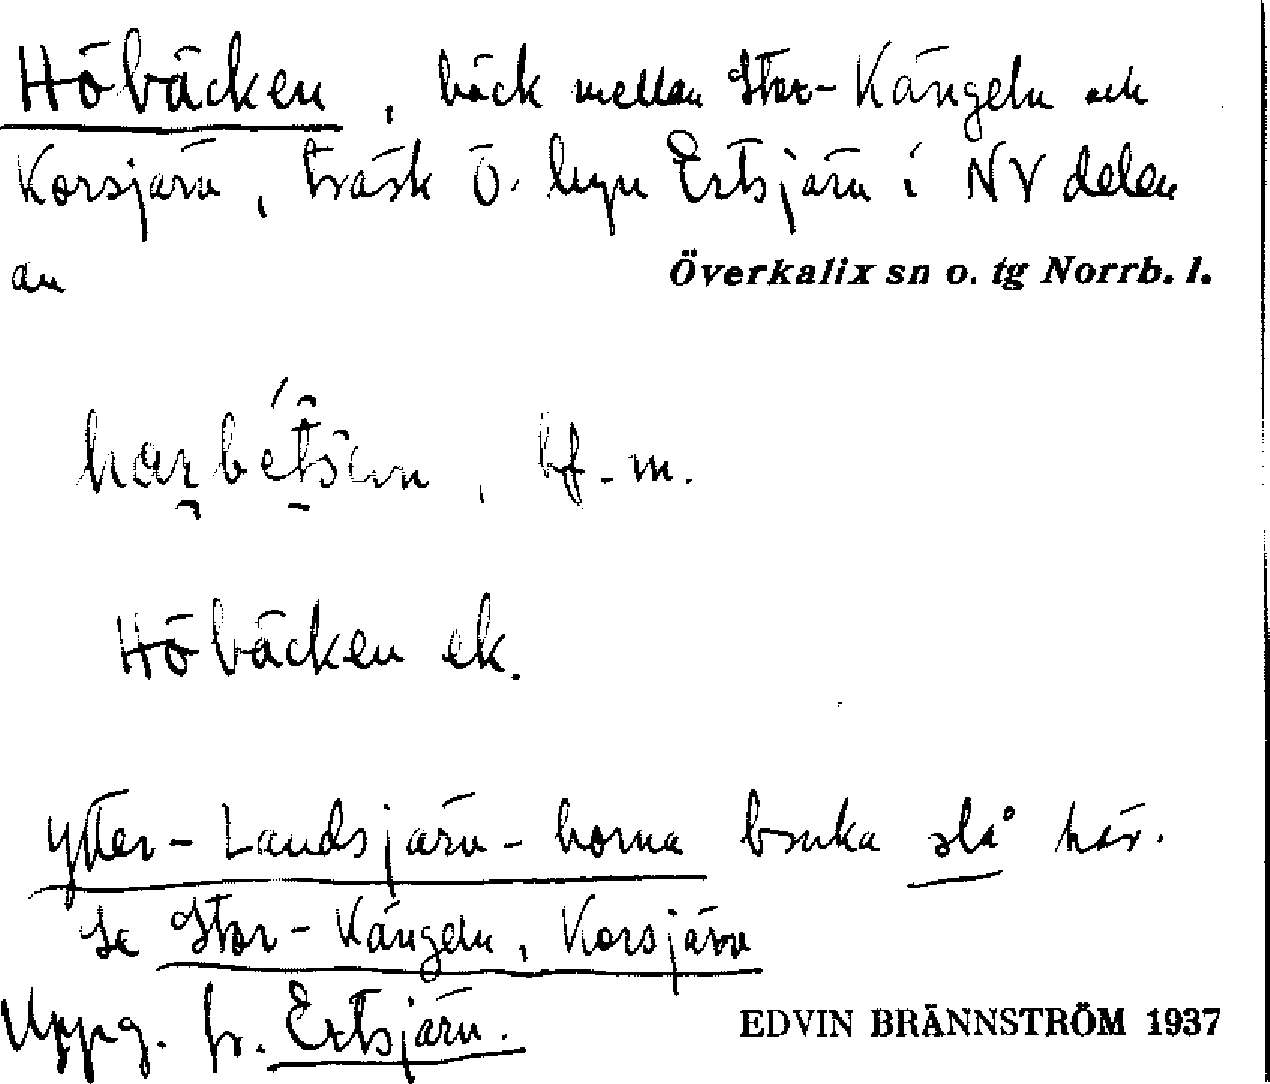 Höbäcken, bäck mellan Stor-Kängeln och
Korsjärv, träsk Ö. byn Ertsjärv i NV delen
av
Överkalix sn o. tg Norrb. l.
bf. m.
Höbäcken ek.
Ytter-Landsjärv-borna bruka slå här.
Se Stor-Kängeln, Korsjärv
Uppg. fr. Ertsjärv.
EDVIN BRÄNNSTRÖM 1937